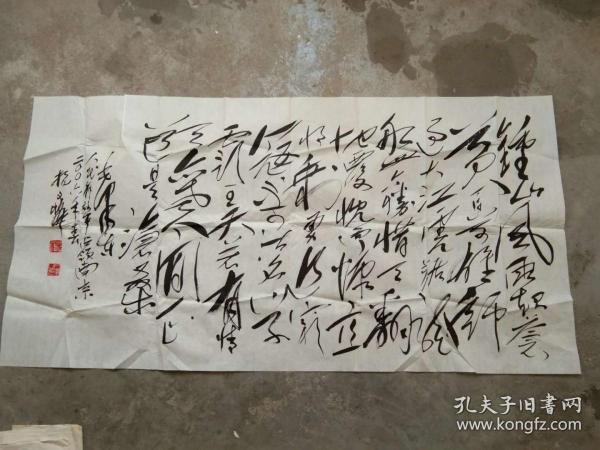 鍾山風雨起蒼
黄百万雄師
过大江虎踞龍
盤今勝惜天翻
地覆慨而慷宜
将剩勇追窮
寇不可沽名学
霸王天若有情
天亦老人间正
道是滄桑
毛澤东
人民解放军占领南京
二〇〇六年春
孔夫子旧书网
www.kongfz.com